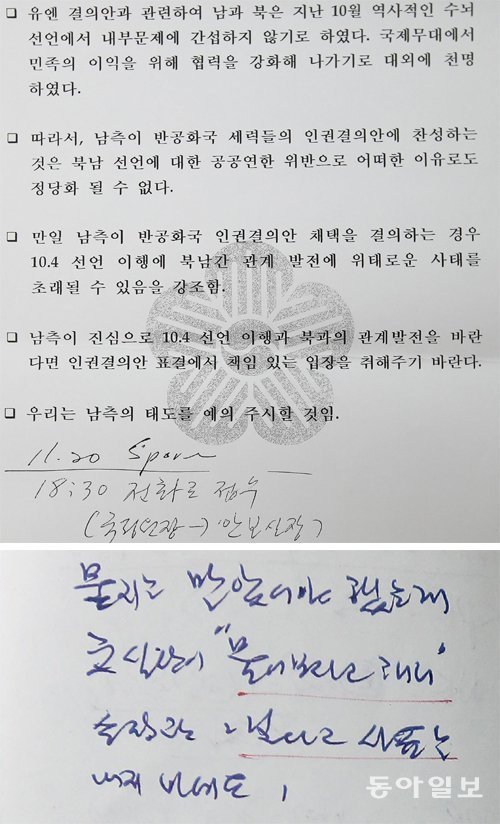 ❑ 유엔 결의안과 관련하여 남과 북은 지난 10월 역사적인 수뇌
선언에서 내부문제에 간섭하지 않기로 하였다. 국제무대에서
민족의 이익을 위해 협력을 강화해 나가기로 대외에 천명
하였다.
❑ 따라서, 남측이 반공화국 세력들의 인권결의안에 찬성하는
것은 북남 선언에 대한 공공연한 위반으로 어떠한 이유로도
정당화 될 수 없다.
❑ 만일 남측이 반공화국 인권결의안 채택을 결의하는 경우
10.4 선언 이행에 북남간 관계 발전에 위태로운 사태를
초래될 수 있음을 강조함.
❑ 남측이 진심으로 10.4 선언 이행과 북과의 관계발전을 바란
다면 인권결의안 표결에서 책임 있는 입장을 취해주기 바란다.
❑ 우리는 남측의 태도를 예의 주시할 것임.
11. 20
18:30 전화로 접수
(국정원장→안보실장)
묻지는 말았어야 했는데
문실장이 "물어보자고 해서"
송장관 그렇다고 사표는
동아일보